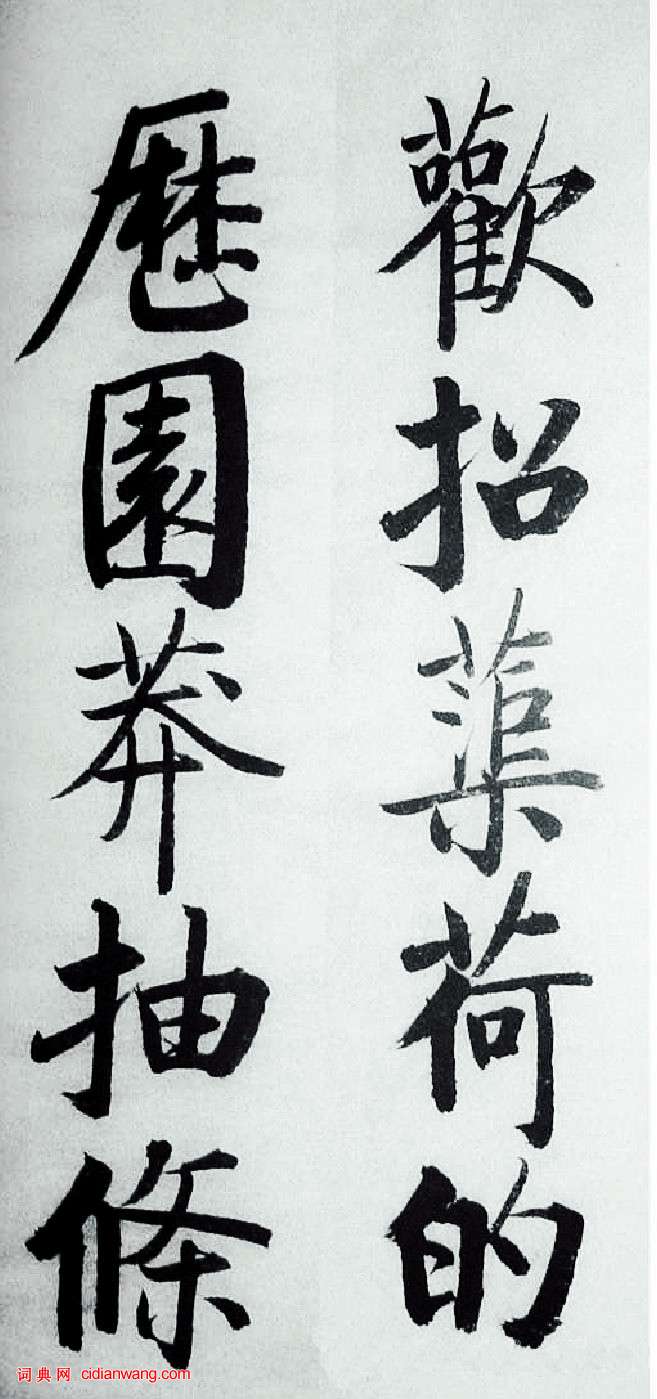 歡招蕖荷的
歷園莽抽條
词典网 cidianwang.com